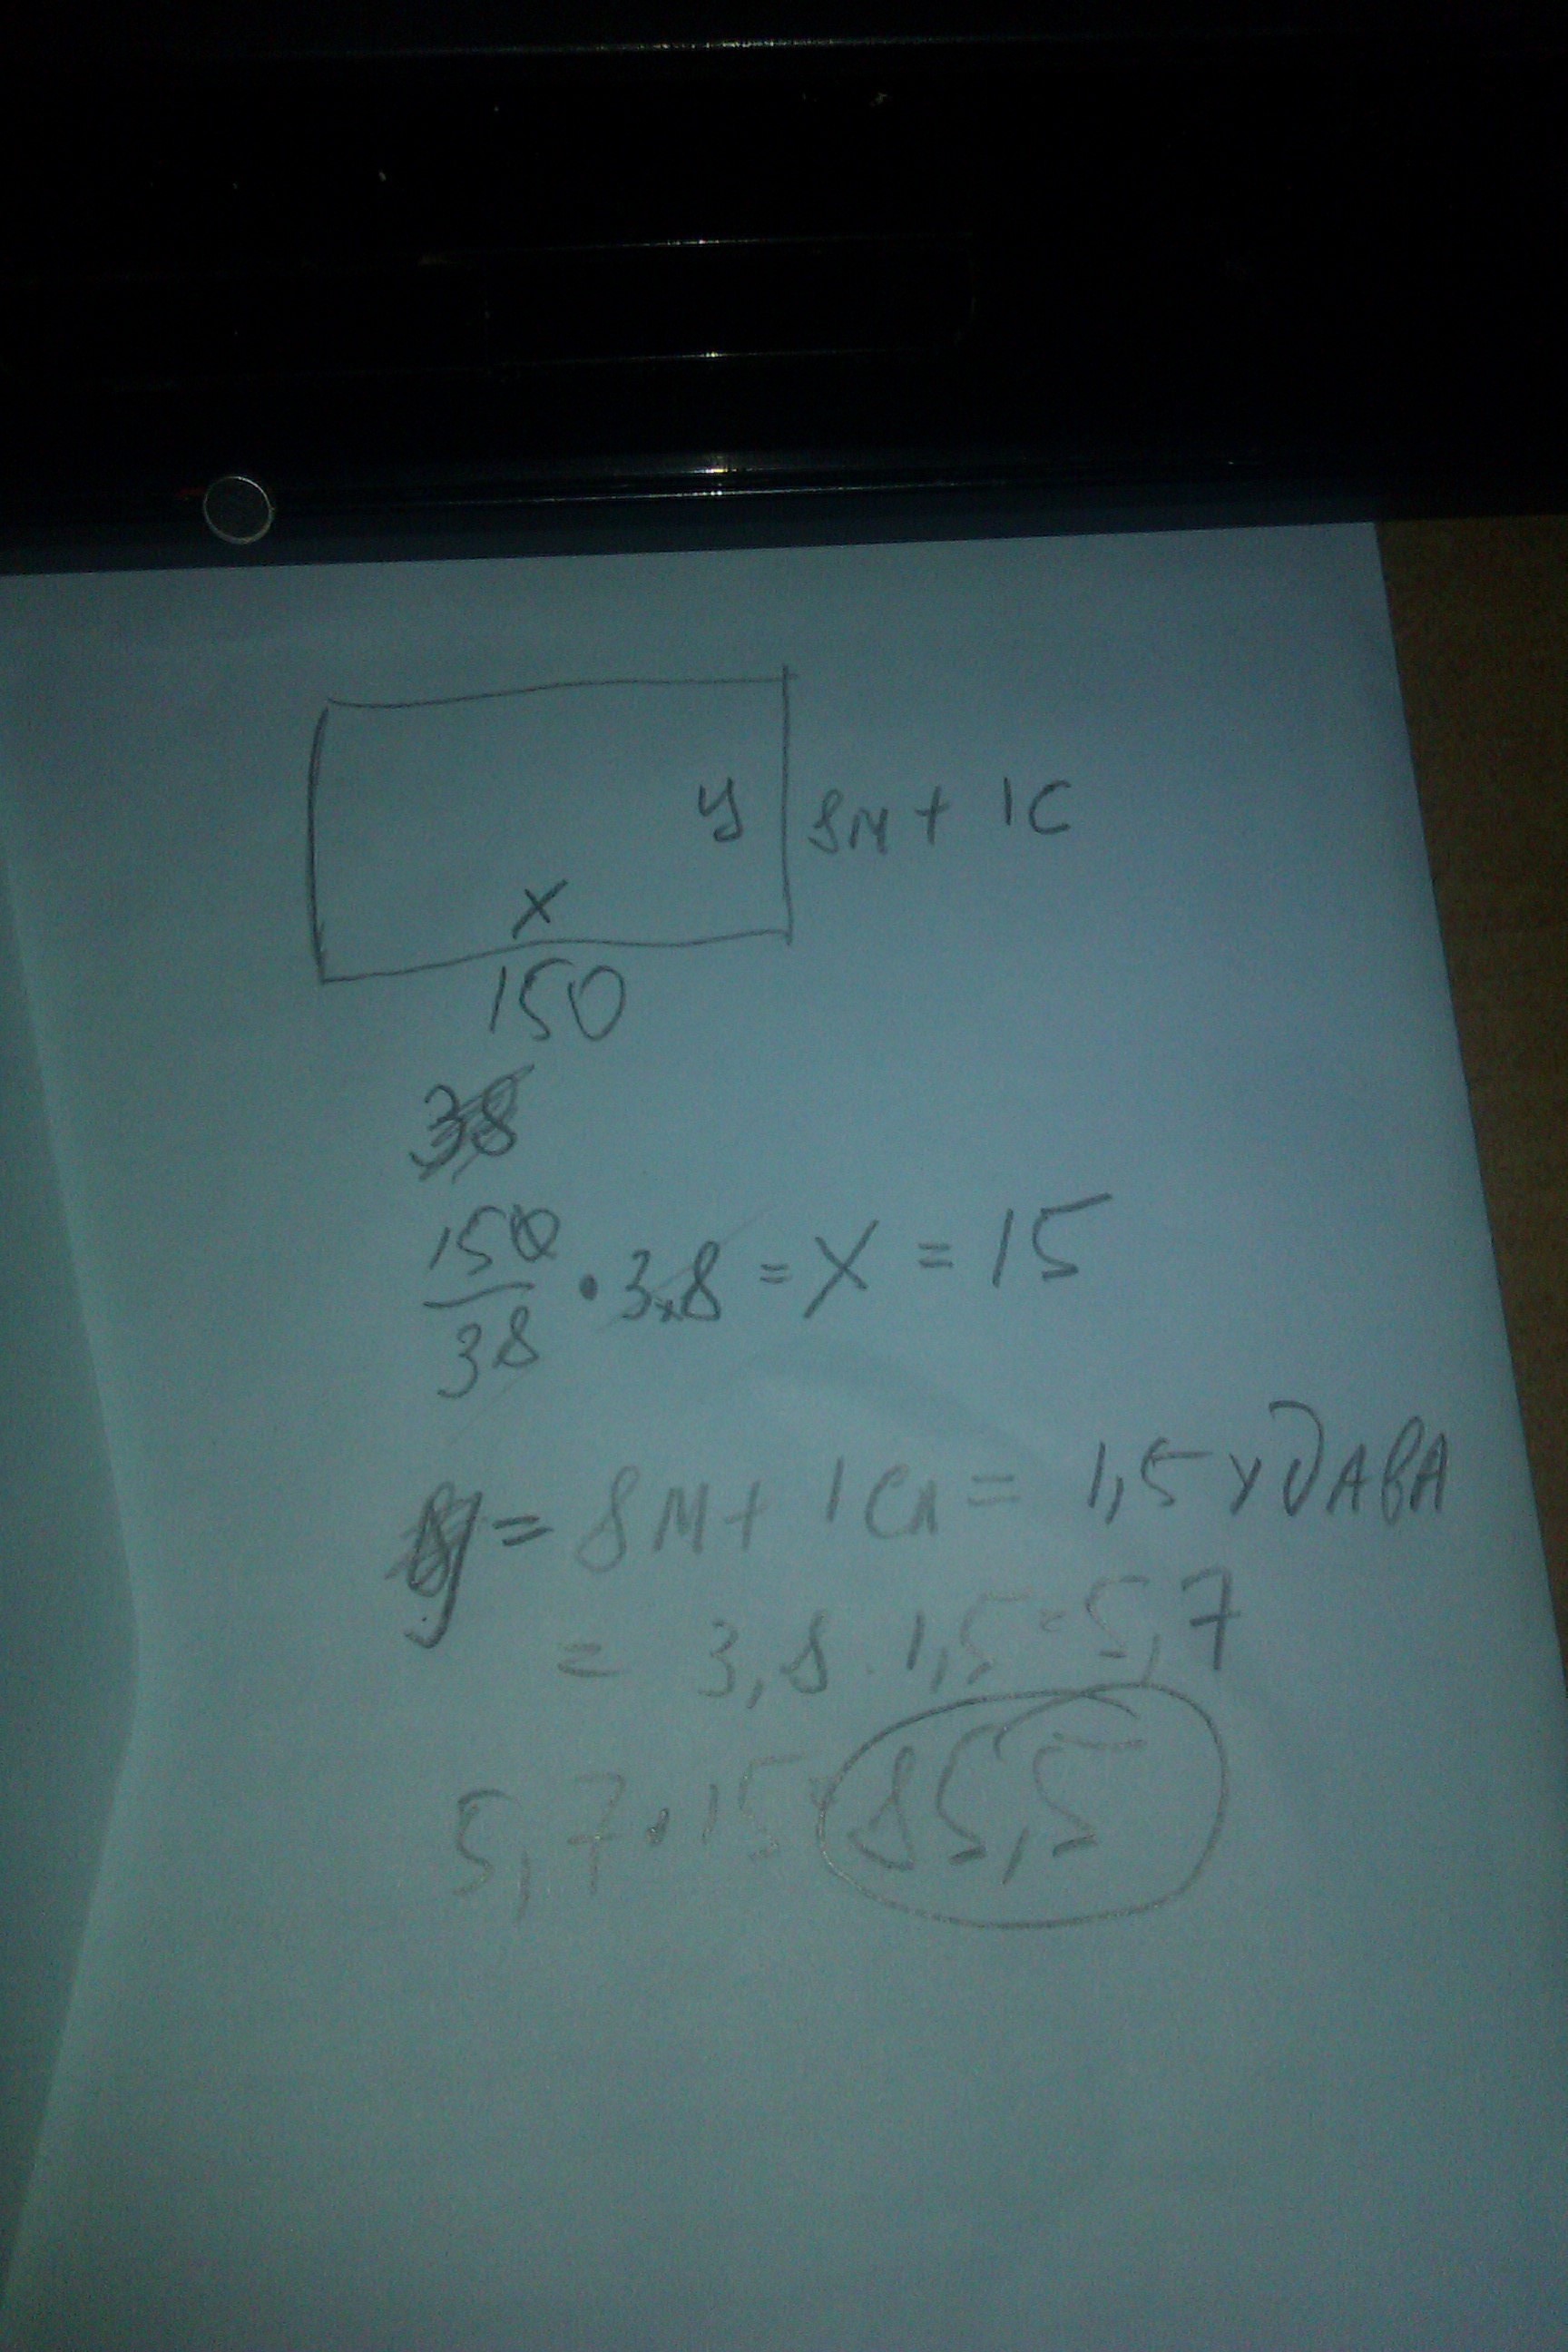 у 8м + 1С
х
150
38
150/38 · 3,8 = X = 15
y = 8м + 1сл = 1,5 удава
= 3,8 · 1,5 = 5,7
5,7 · 15 = 85,5